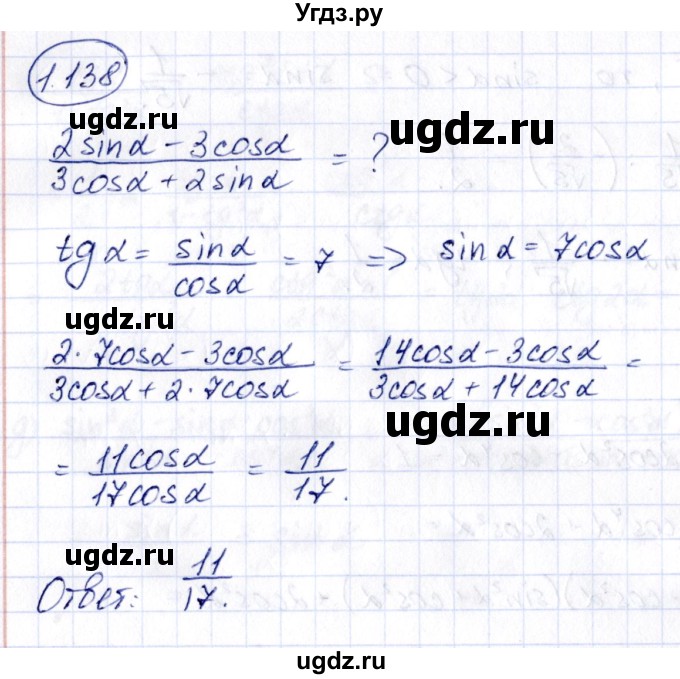 Угдз.ру
1.138
ugdz.ru
ugdz.ru
(2 sinα − 3cosα)/(3cosα + 2 sinα) = ?
tg α = sinα/cosα = 7 => sin α = 7cosα
ugdz.ru
(2 · 7cosα − 3cosα)/(3cosα + 2 · 7cosα) = (14cosα − 3cosα)/(3cosα + 14cosα) =
ugdz.ru
= 11cosα/17cosα = 11/17.
ugdz.ru
Ответ: 11/17.
ugdz.ru